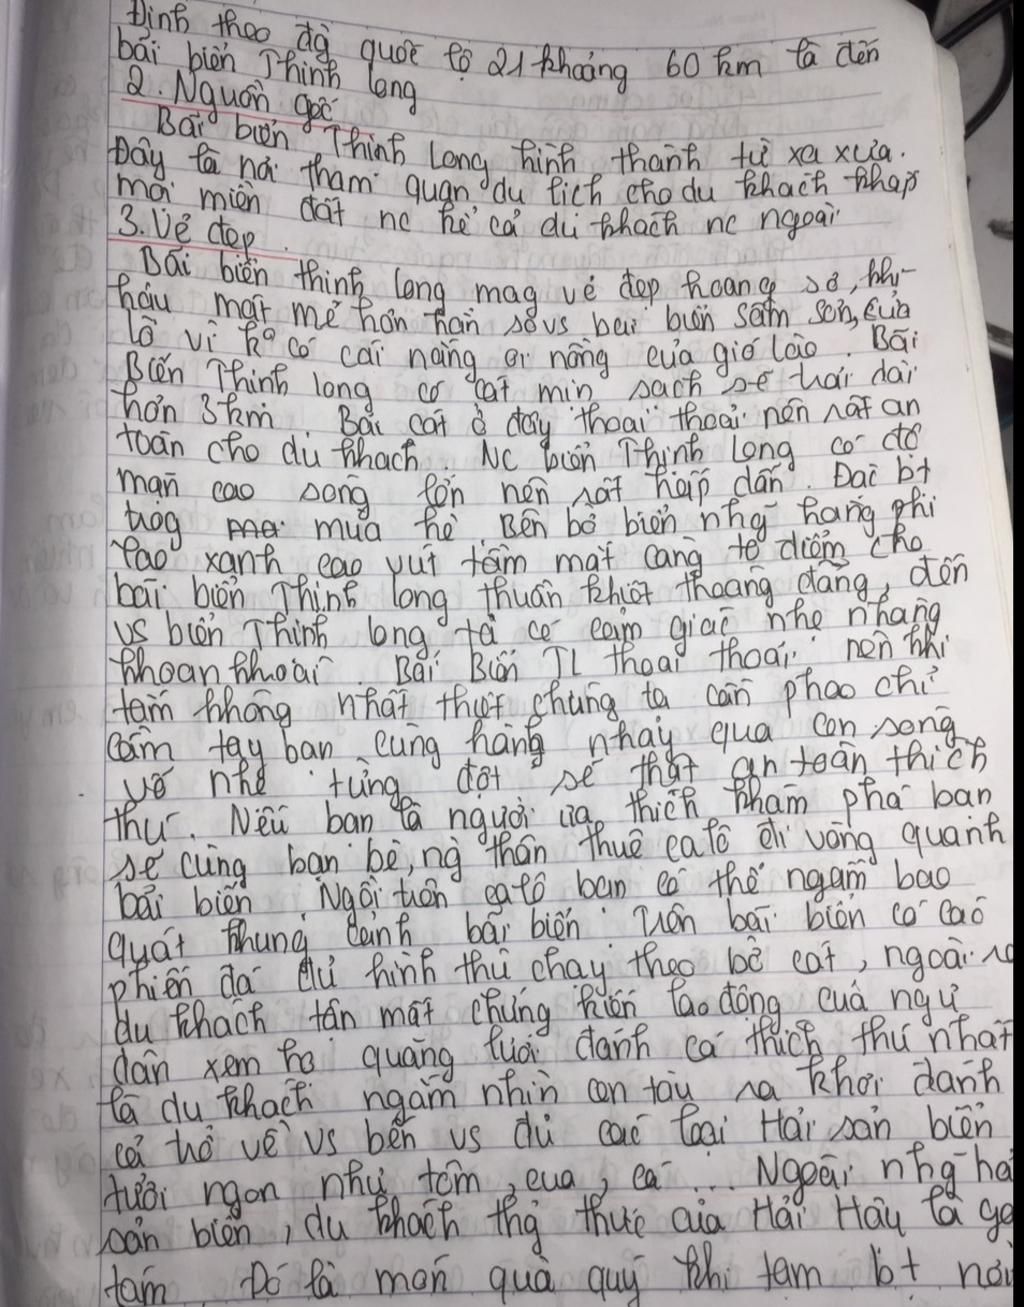 Định theo đg quốc lộ 21 khoảng 60 km là đến
bãi biển Thịnh Long
2. Nguồn gốc
Bãi biển Thịnh Long hình thành từ xa xưa.
Đây là nơi tham quan du lịch cho du khách khắp
mọi miền đất nc kể cả du khách nc ngoài
3. Vẻ đẹp.
Bãi biển thịnh long mag vẻ đẹp hoang sơ, khí
hậu mát mẻ hơn hẳn so vs bãi biển Sầm Sơn, Cửa
lò vì ko có cái nắng oi nồng của gió lào. Bãi
Biển Thịnh long có cát mịn sạch sẽ trải dài
hơn 3km. Bãi cát ở đây thoai thoải nên rất an
toàn cho du khách. Nc biển Thịnh Long có độ
mặn cao sóng lớn nên rất hấp dẫn. Đặc bt
trog mùa hè. Bên bờ biển nhg hàng phi
lao xanh cao vút tầm mắt càng tô điểm cho
bãi biển Thịnh long thuần khiết thoáng đãng, đến
vs biển Thịnh long ta có cảm giác nhẹ nhàng
khoan khoái. Bãi Biển TL thoai thoải nên khi
tắm không nhất thiết chúng ta cần phao chỉ
cầm tay bạn cùng hàng nhảy qua con sóng
vỗ nhẹ từng đợt sẽ thật an toàn thích
thú. Nếu bạn là người ưa thích khám phá bạn
sẽ cùng bạn bè, ng thân thuê ca nô đi vòng quanh
bãi biển. Ngồi trên ca nô bạn có thể ngắm bao
quát khung cảnh bãi biển. Trên bãi biển có các
phiến đá đủ hình thù chạy theo bờ cát, ngoài ra
du khách tận mắt chứng kiến lao động của ngư
dân xem họ quăng lưới đánh cá thích thú nhất
là du khách ngắm nhìn con tàu ra khơi đánh
cá trở về vs bến vs đủ các loại Hải sản biển
tươi ngon như tôm, cua, cá ... Ngoài nhg hải
sản biển, du khách thg thức của Hải Hậu là gạo
tám. Đó là món quà quý khi tạm bt nơi